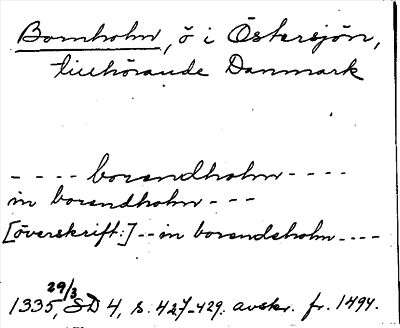 Bornholm, ö i Östersjön,
tillhörande Danmark
- - - - borendholm - - - -
in borendholm - - -
[överskrift:] - - in borendeholm - - - -
29/3
1335, SD 4, s. 427-429. avskr. fr. 1494.